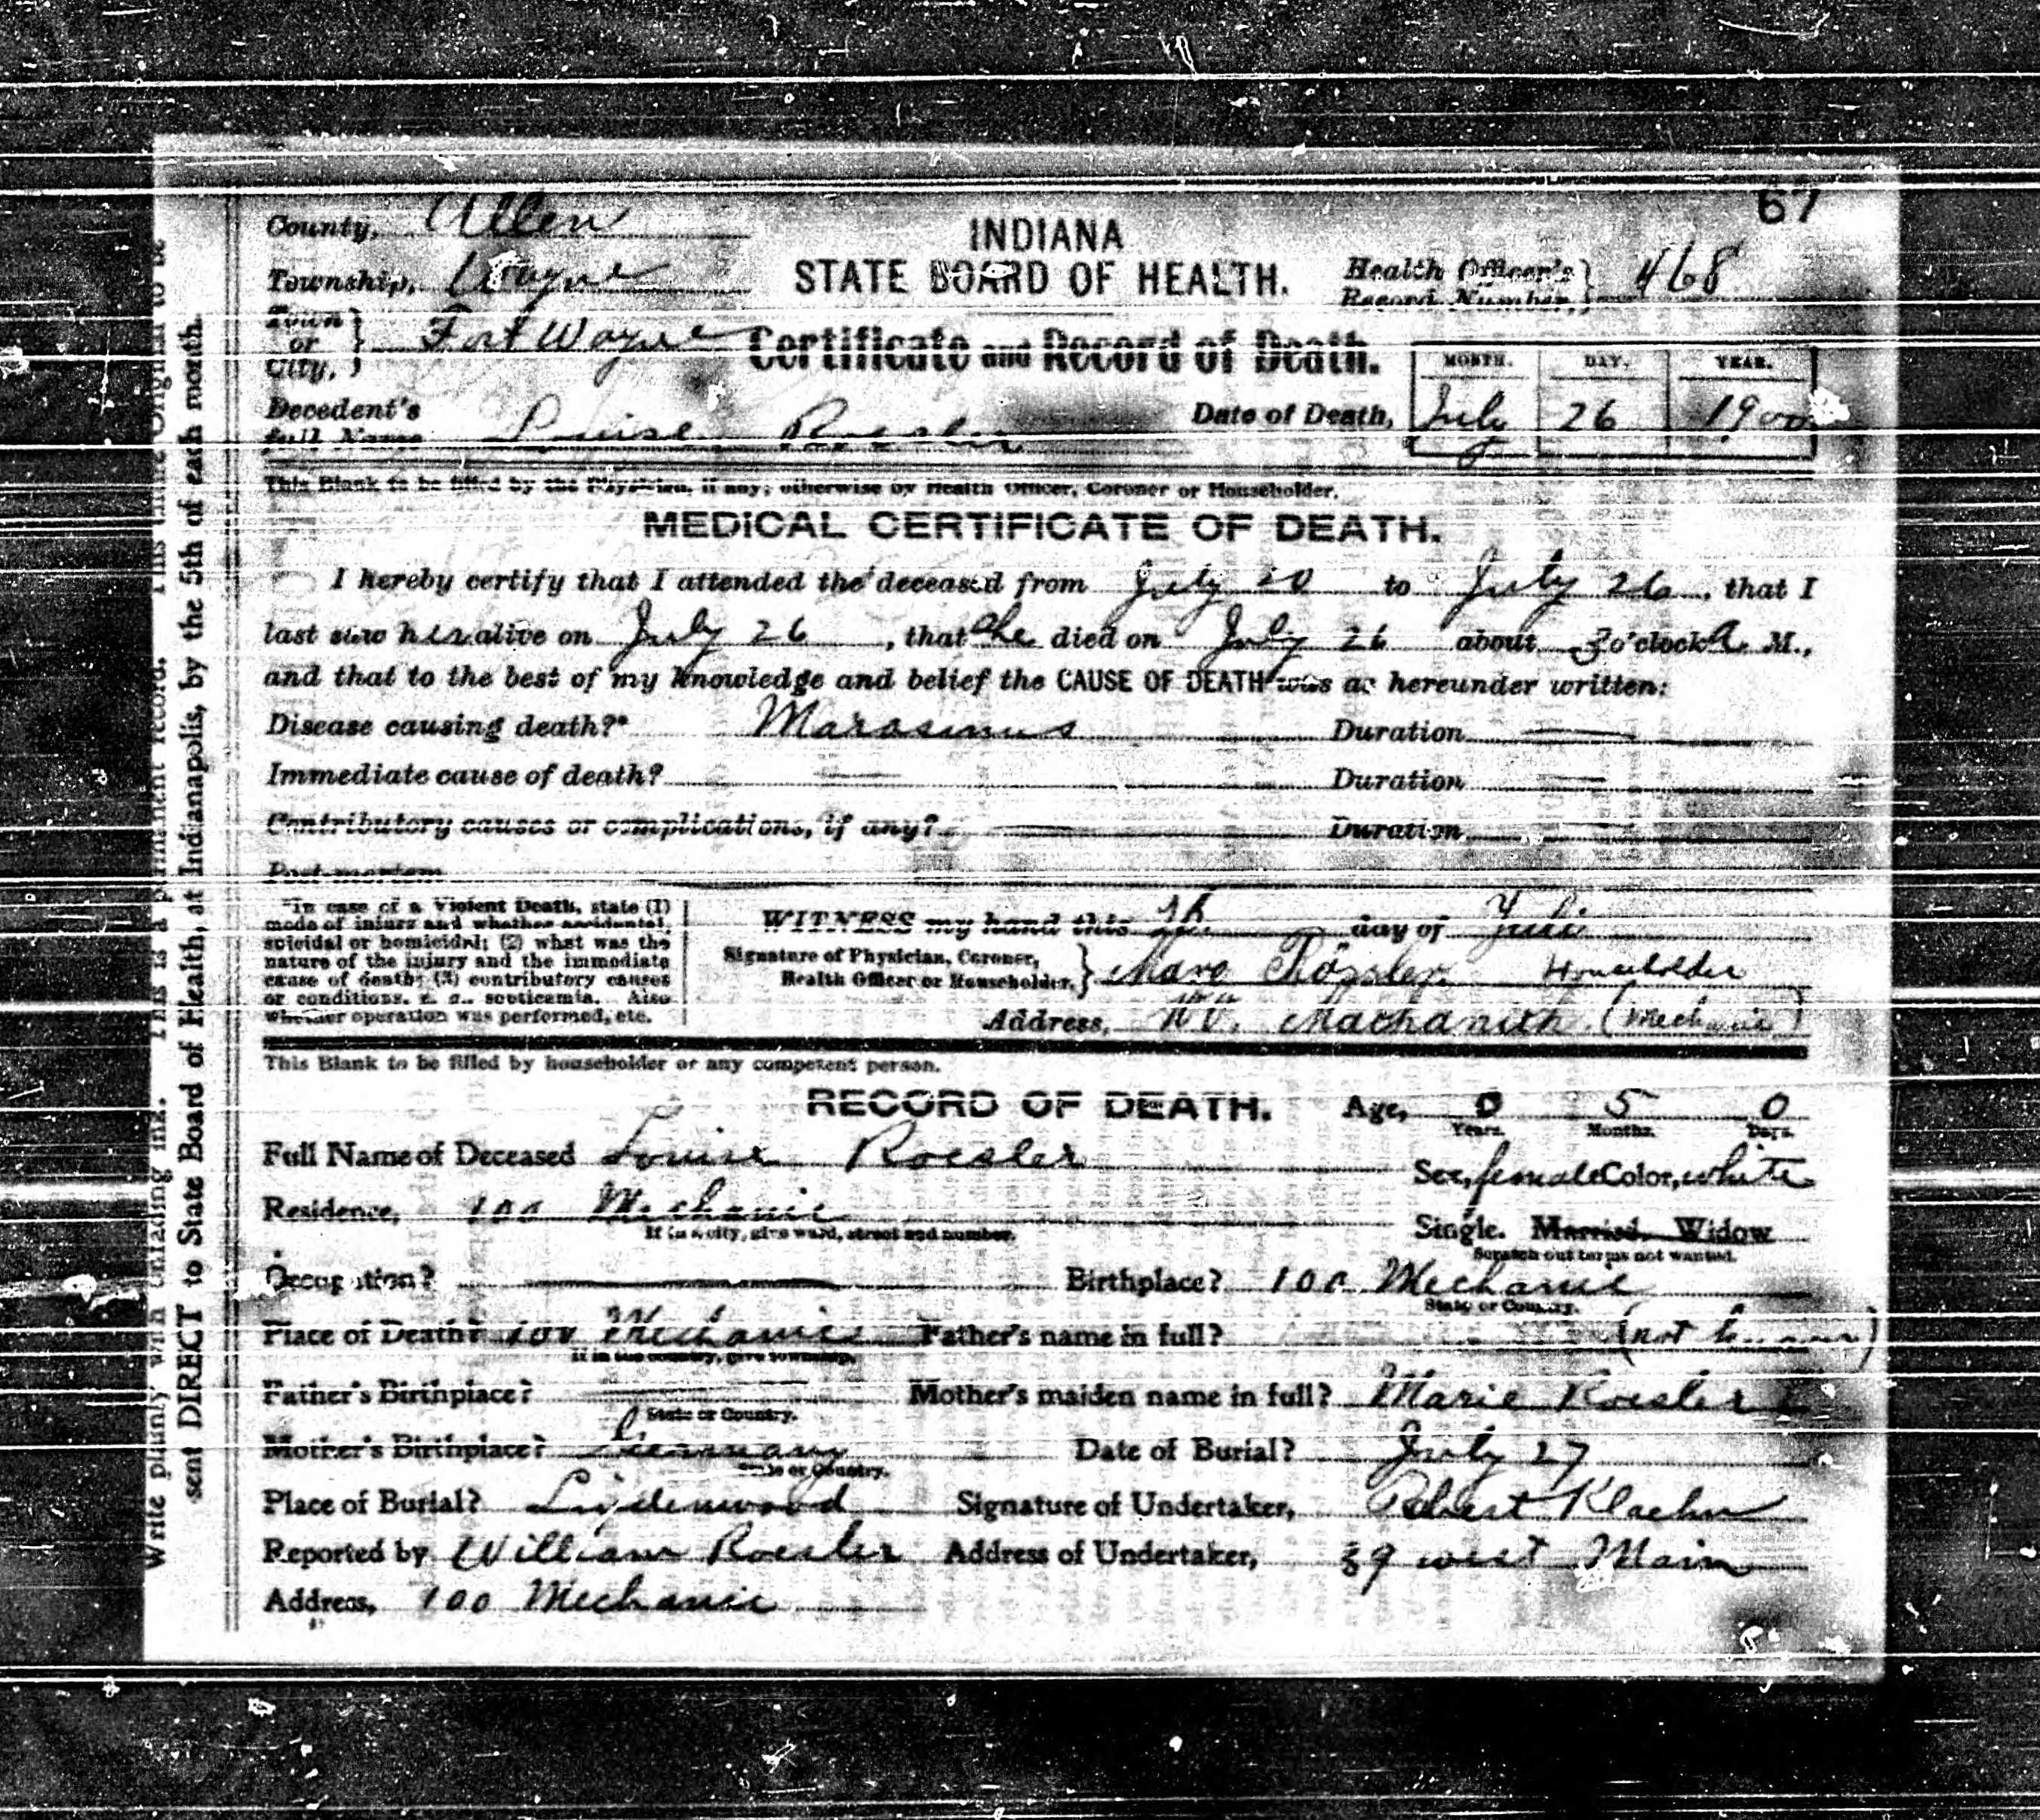 67
County, Allen
INDIANA
Township, Wayne
STATE BOARD OF HEALTH.
Health Officer's Record Number, } 468
Town or City, } Fort Wayne
Certificate and Record of Death.
MONTH. DAY. YEAR.
Decedent's full Name Louise Roesler
Date of Death, July 26 1900
This Blank to be filled by the Physician, if any; otherwise by Health Officer, Coroner or Householder.
MEDICAL CERTIFICATE OF DEATH.
I hereby certify that I attended the deceased from July 20 to July 26, that I
last saw her alive on July 26, that she died on July 26 about 3 o'clock a. M.,
and that to the best of my knowledge and belief the CAUSE OF DEATH was as hereunder written:
Disease causing death?* Marasmus Duration
Immediate cause of death? Duration
Contributory causes or complications, if any? Duration
Post-mortem
*In case of a Violent Death, state (1)
mode of injury and whether accidental,
suicidal or homicidal; (2) what was the
nature of the injury and the immediate
cause of death; (3) contributory causes
or conditions, e. g., septicemia. Also
whether operation was performed, etc.
WITNESS my hand this 26 day of Juli
Signature of Physician, Coroner,
Health Officer or Householder, } Rössler. Householder
Address, Machanith (Mechanic)
This Blank to be filled by householder or any competent person.
RECORD OF DEATH. Age, 0 5 0
Years. Months. Days.
Full Name of Deceased Louise Roesler
Sex, female Color, white
Residence, 100 Mechanic
If in a city, give ward, street and number.
Single. Married. Widow
Scratch out terms not wanted.
Occupation? Birthplace? 100 Mechanic
State or Country.
Place of Death? 100 Mechanic Father's name in full? (not known)
If in the country, give township.
Father's Birthplace? Mother's maiden name in full? Marie Roesler
State or Country.
Mother's Birthplace? Germany Date of Burial? July 27
State or Country.
Place of Burial? Lindenwood Signature of Undertaker, Robert Klaehn
Reported by William Roesler Address of Undertaker, 39 west Main
Address, 100 Mechanic
Write plainly with unfading ink. This is a permanent record. This the Original to be
sent DIRECT to State Board of Health, at Indianapolis, by the 5th of each month.